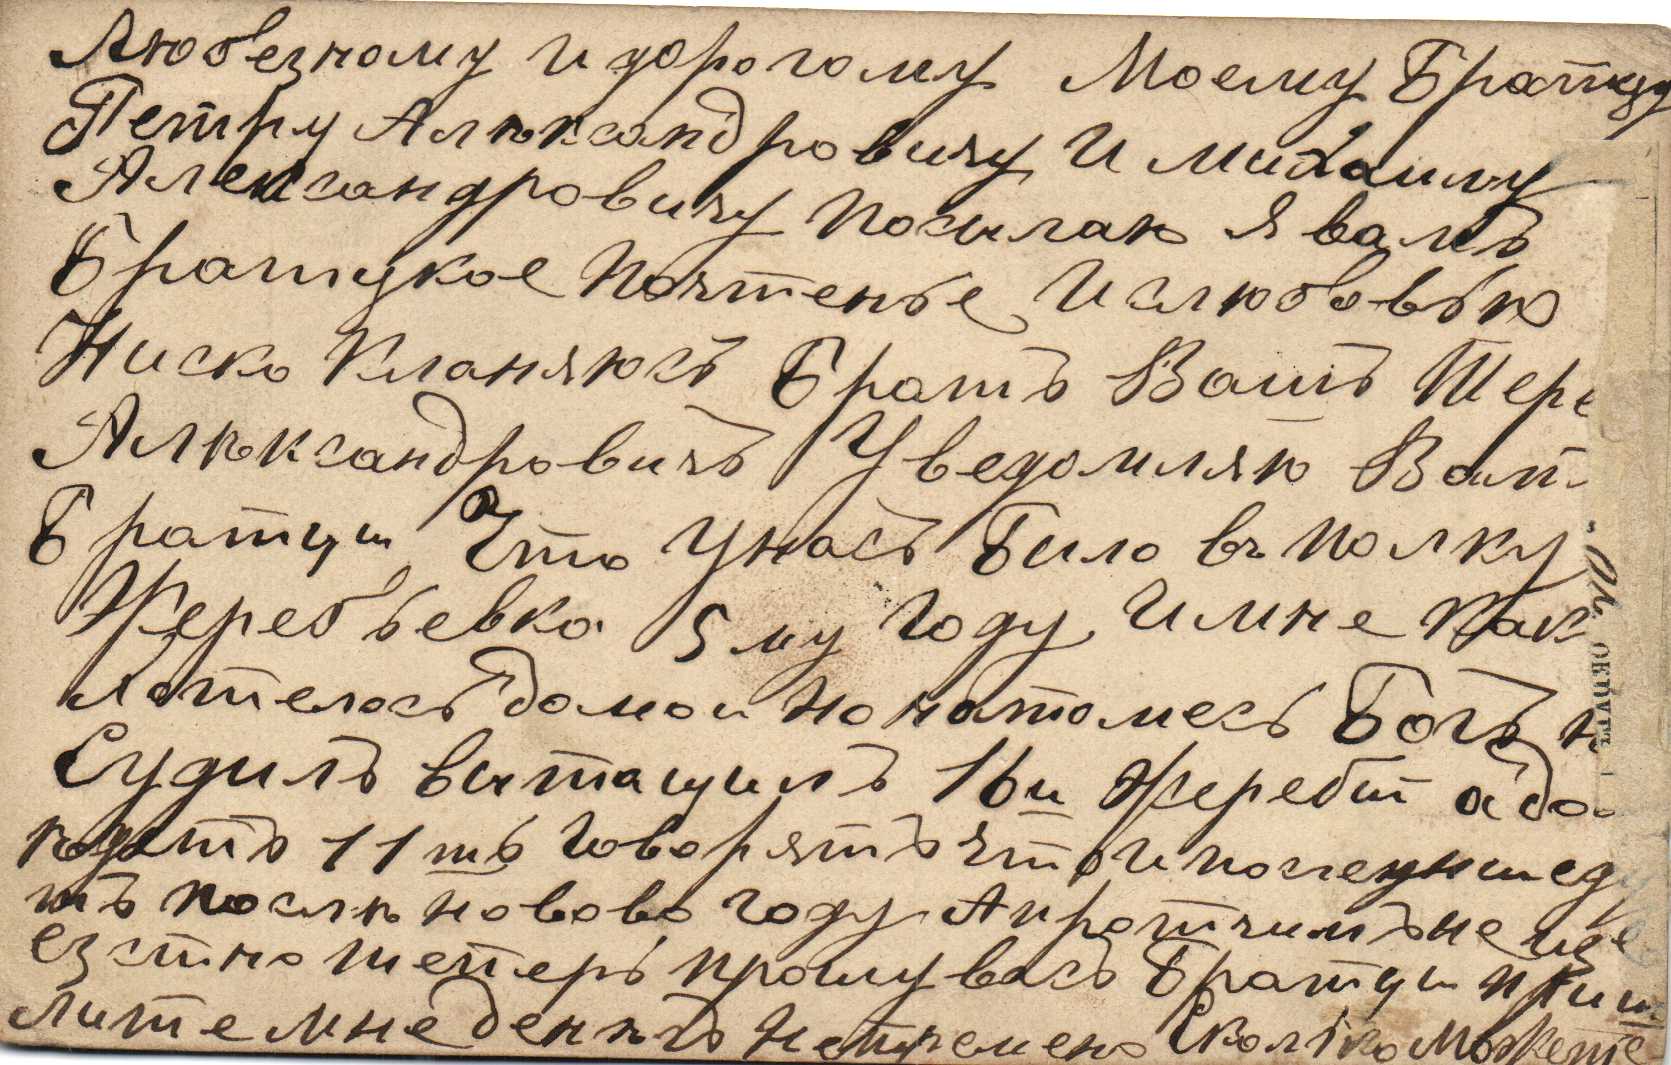 Любезному и дорогому Моему Братцу
Петру Алѣксандровичу И михаилу
Александровичу посылаю я вамъ
Братцкое почтенье И слюбовью
Ниско Кланяюсь Братъ Вашъ Тере
Алѣксандровичъ Уведомляю Вам
Братцы Что Унасъ Было въ полку
Жеребьевка 5 му году И мне как
хотелось домои но на томесь Богъ н
Судилъ вытащилъ 16и Жеребит а до
ходитъ 11 тъ Говорятъ что и последни еду
тъ послѣ новово году А протчимъ не изв
езстно теперь прошу васъ Братцы приш
лите мне денѣгъ непремено Сколько Можете
ОКРЫТО